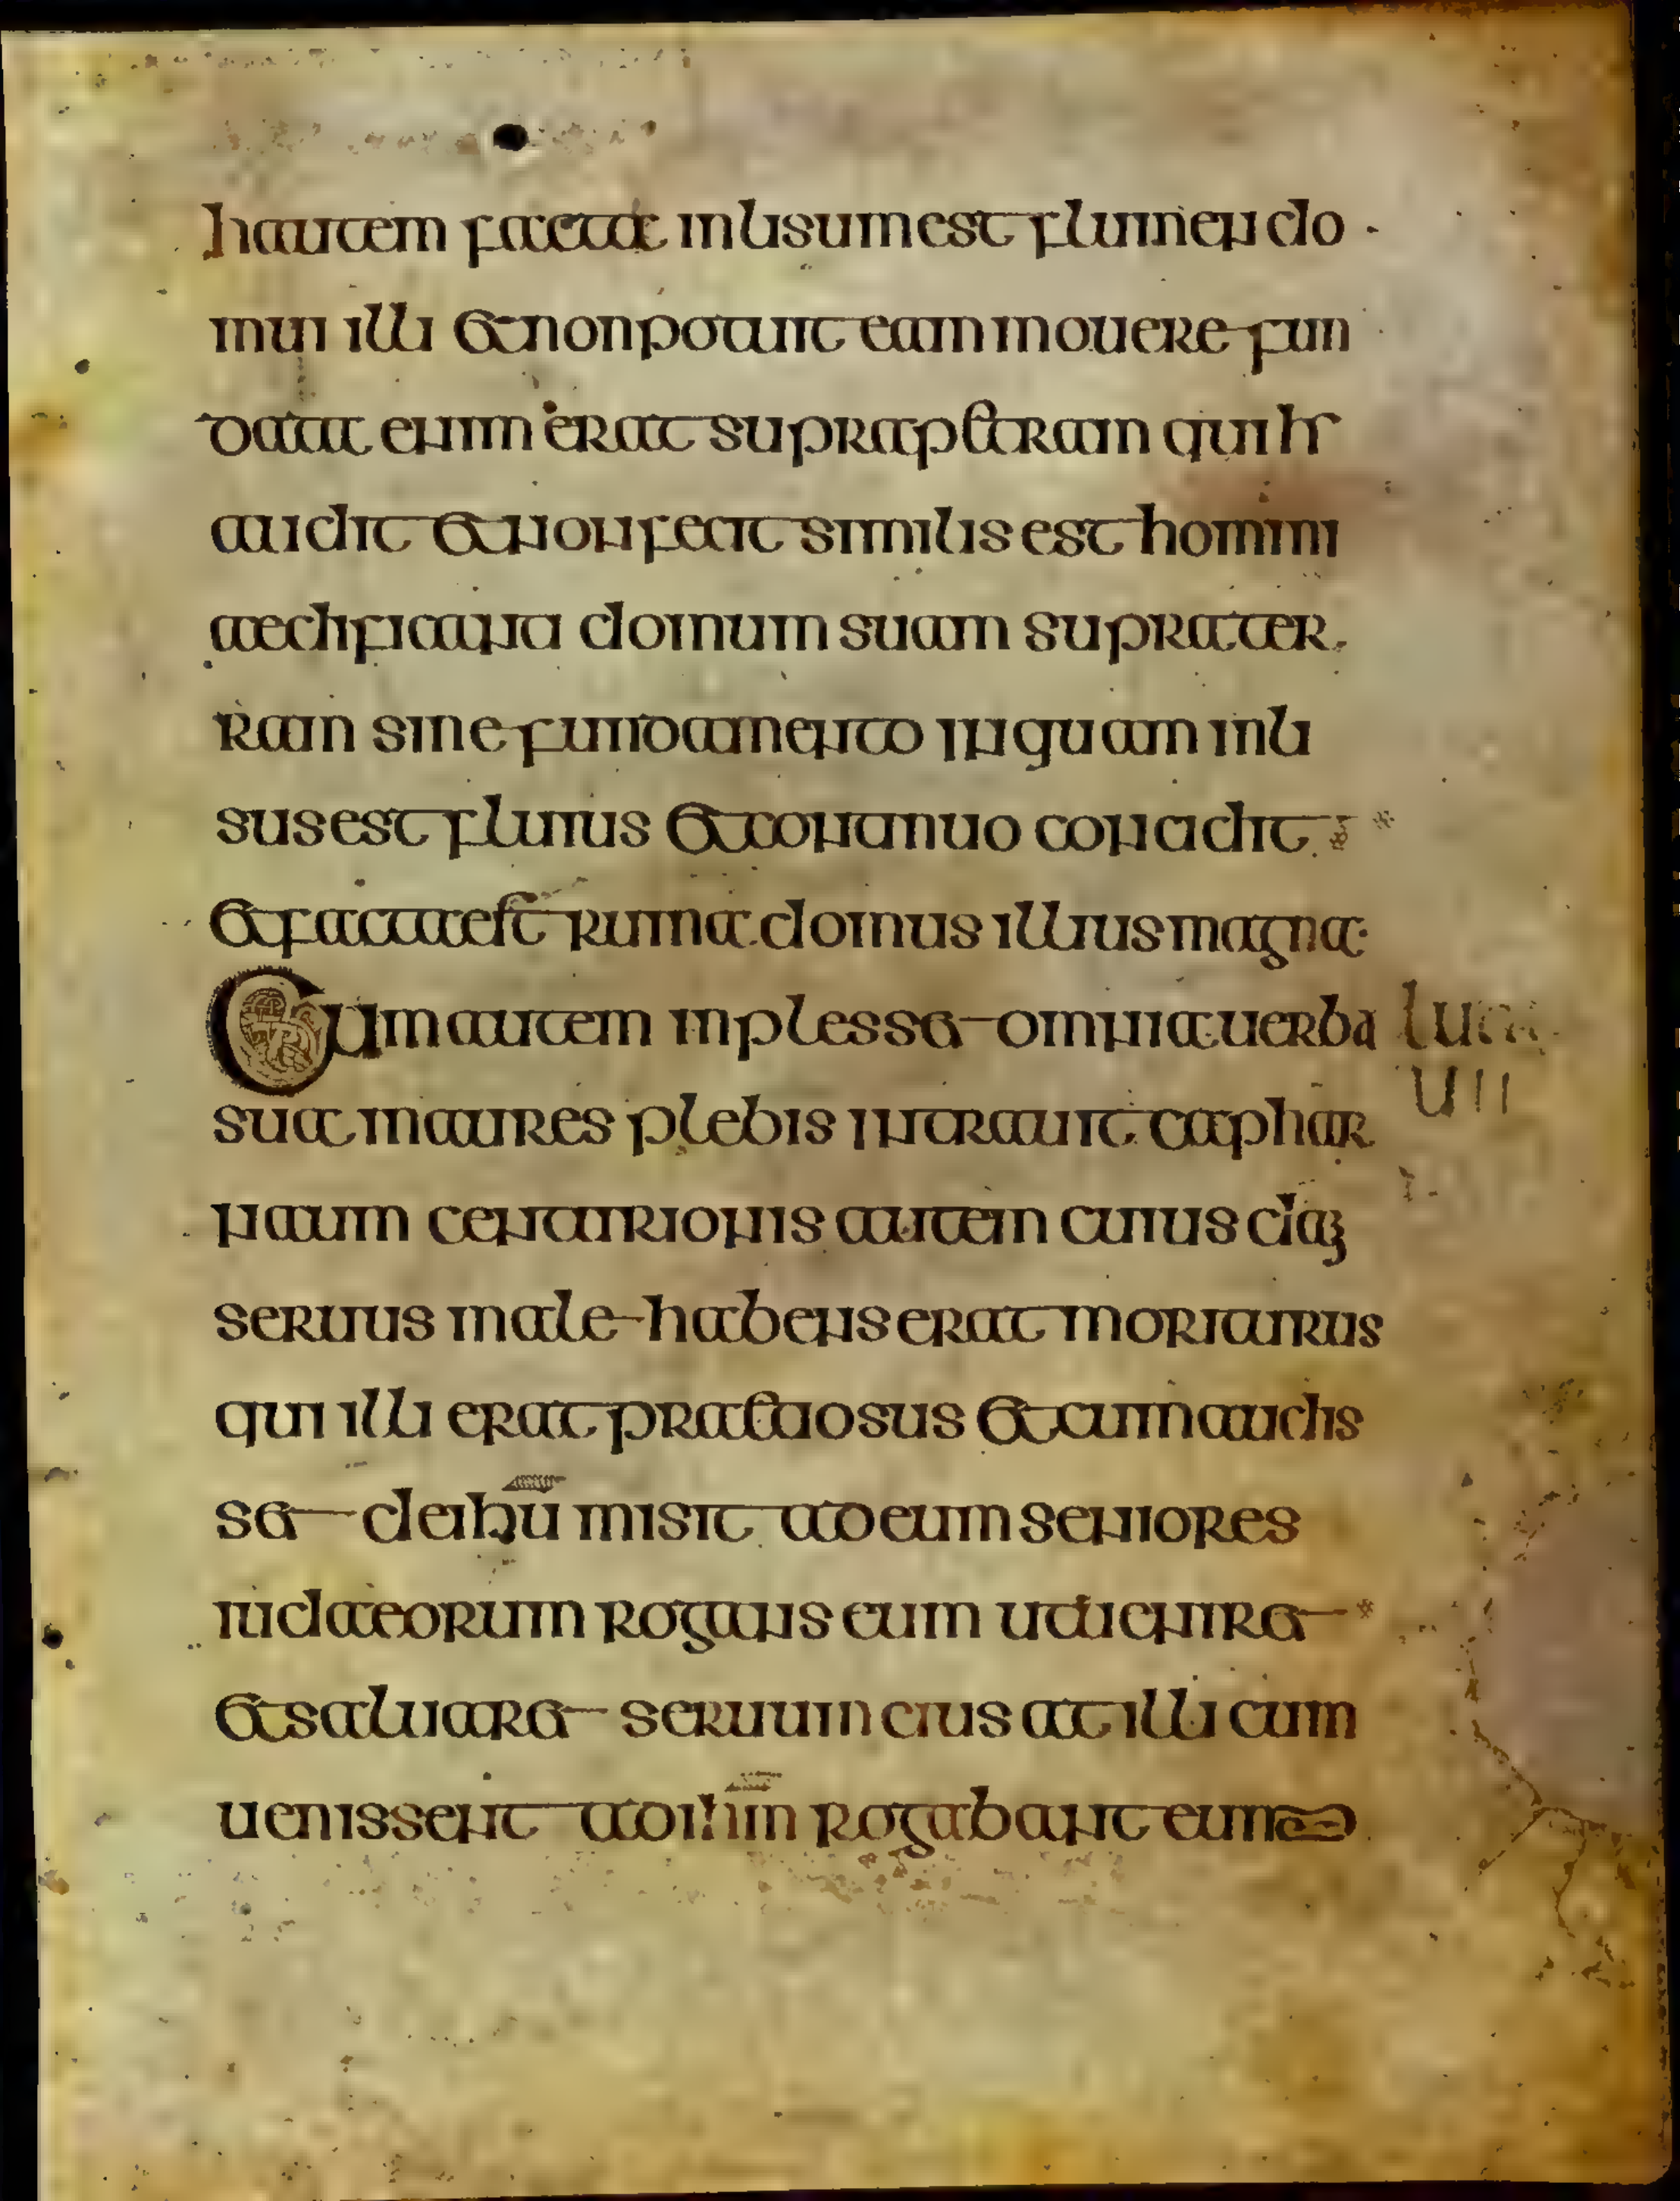 hautem facta inlisum est flumen do
mui illi et non potuit eam mouere fun
data enim erat supra petram qui hr
audit et non fecit similis est homini
aedificanti domum suam supra ter
ram sine fundamento in quam inli
sus est fluius et continuo concidit
et facta est ruina domus illius magna
Cum autem inplesset omnia uerba
sua in aures plebis intrauit caphar
naum centurionis autem cuius
seruus male habens erat moriturus
qui illi erat praetiosus et cum audis
set de ihu misit ad eum seniores
iudaeorum rogans eum ut ueniret
et saluaret seruum eius at illi cum
uenissent ad ihm rogabant eum
UII